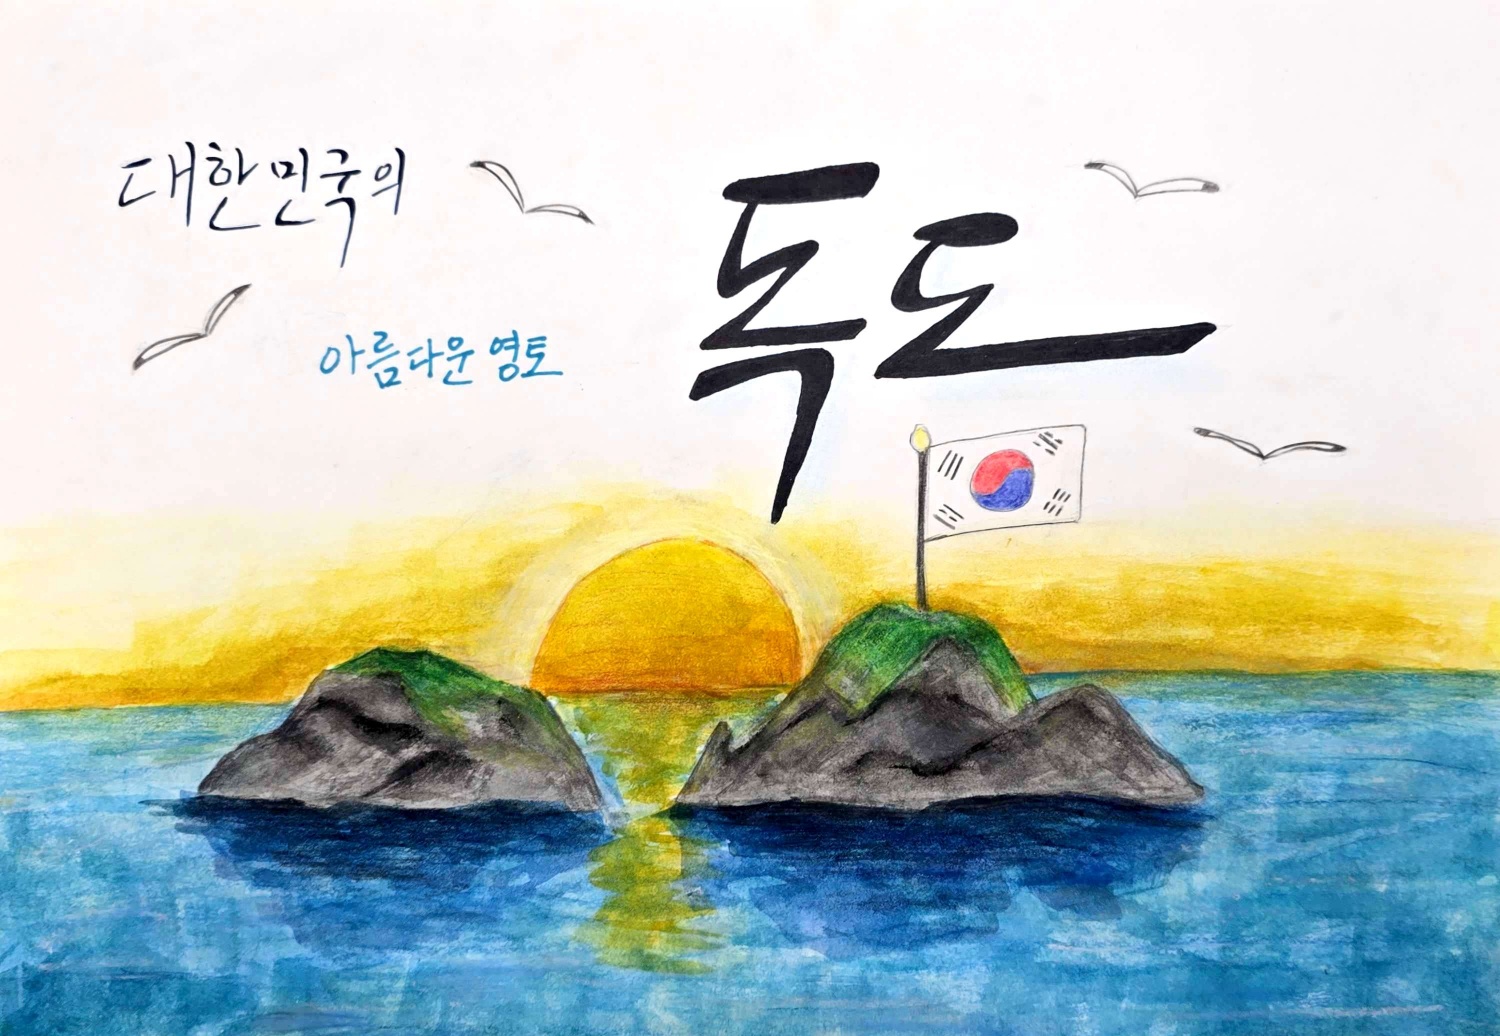 대한민국의
아름다운 영토
독도